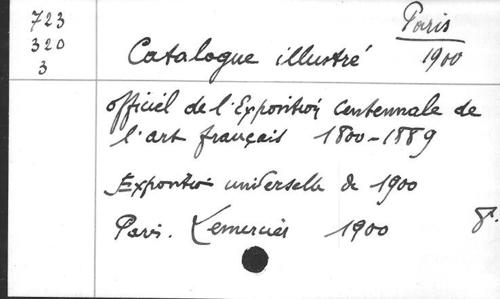 723
320
3
Paris
Catalogue illustré 1900
officiel de l'Exposition Centennale de
l'art français 1800-1889
Exposition universelle de 1900
Paris. Lemercier 1900 8º.